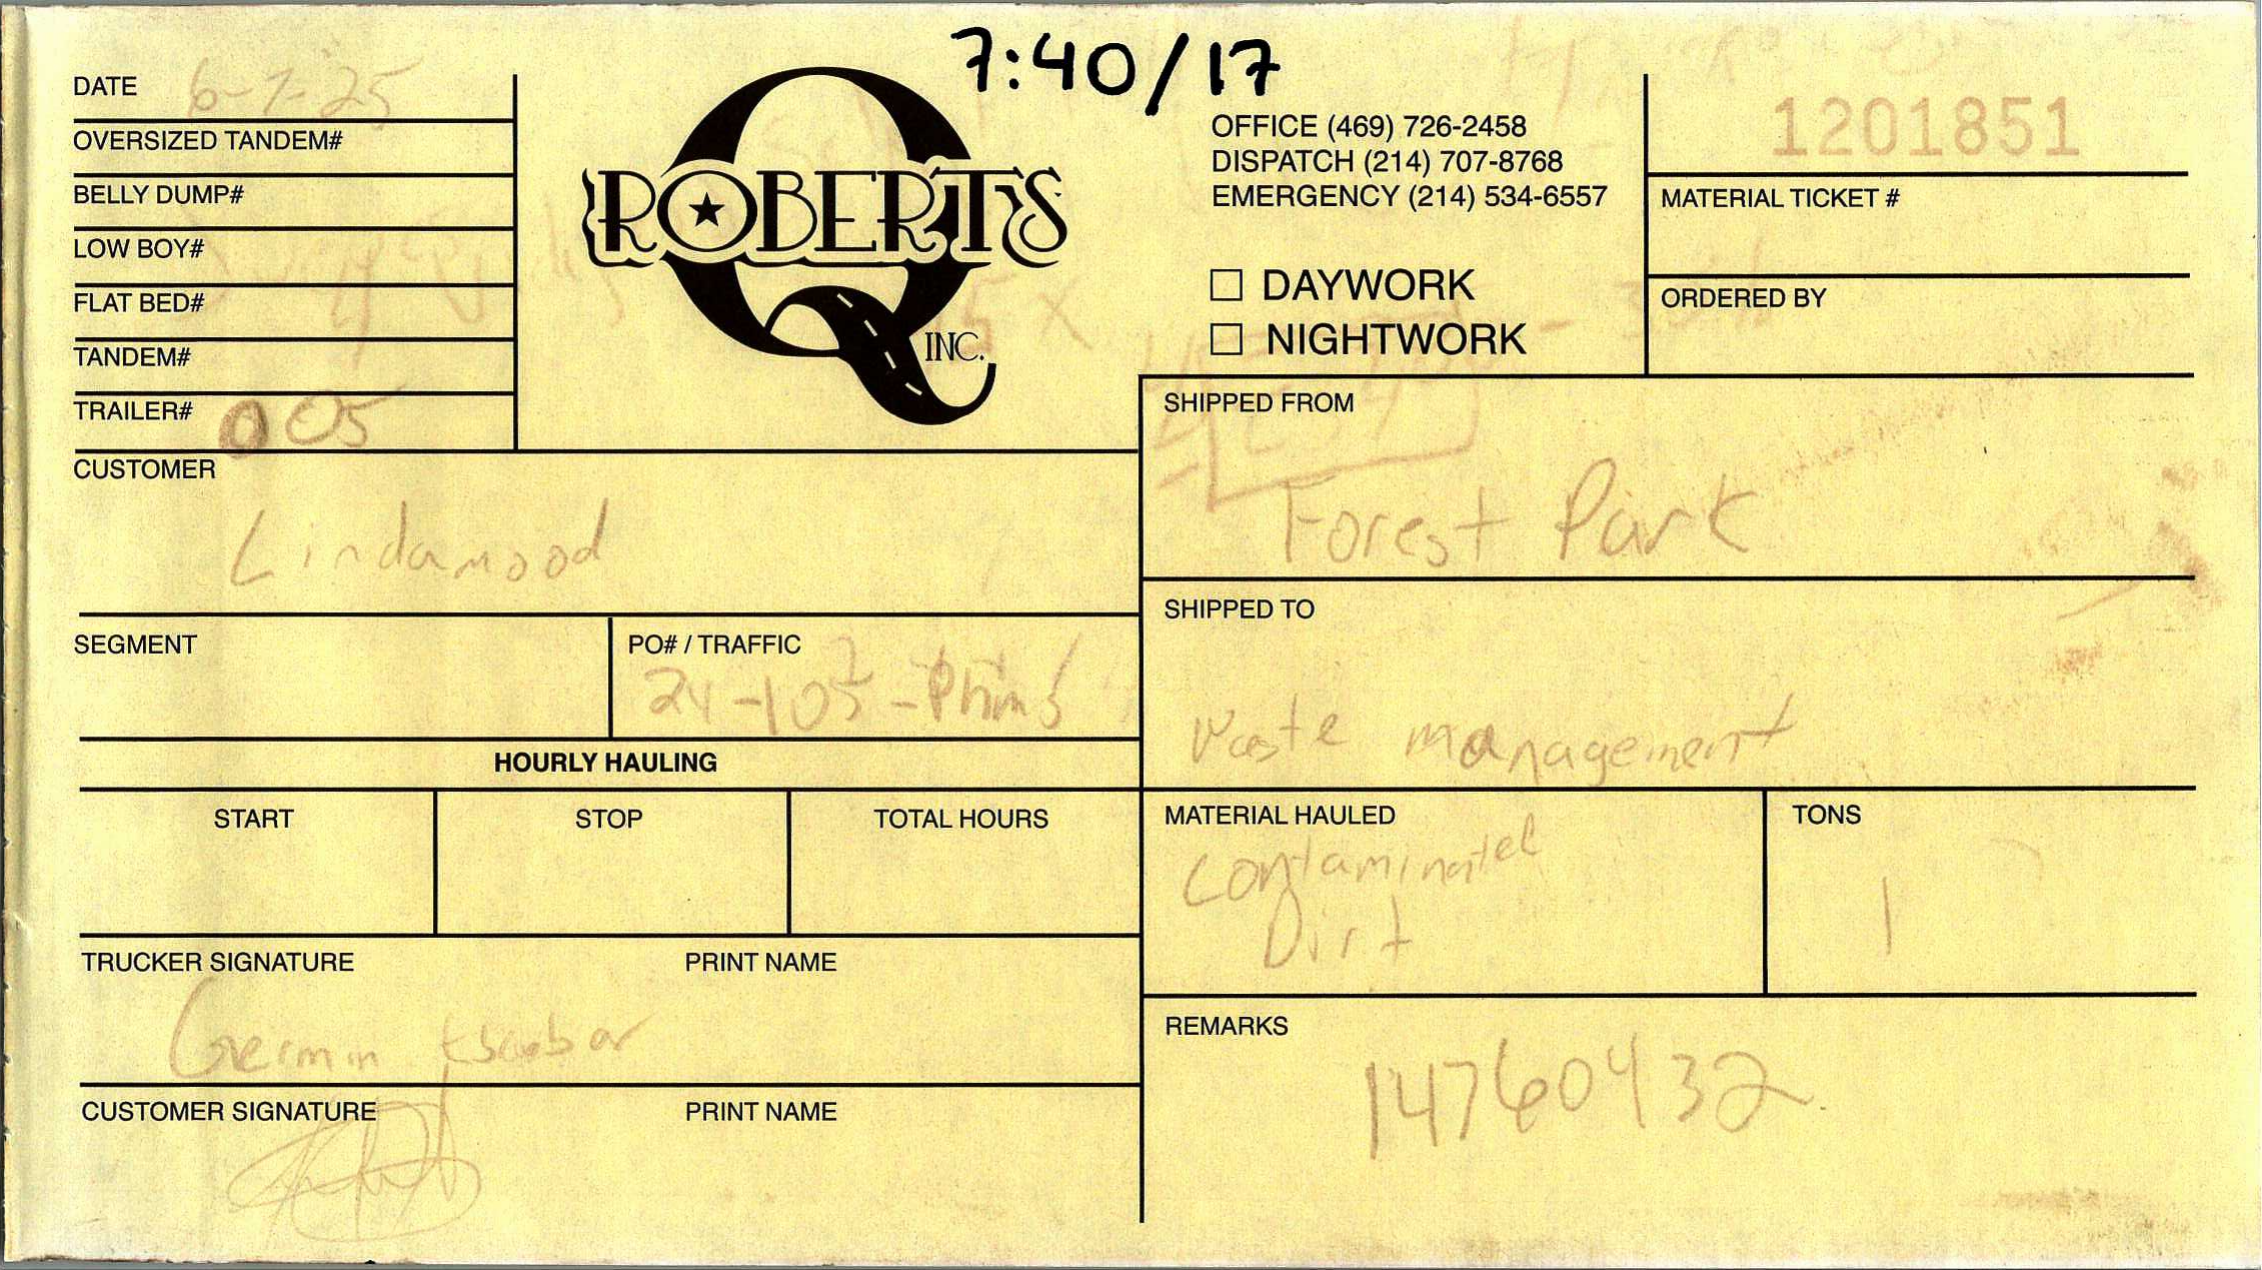 7:40/17
DATE 6-7-25
OVERSIZED TANDEM#
BELLY DUMP#
LOW BOY#
FLAT BED#
TANDEM#
TRAILER# 005
ROBERTS
INC.
OFFICE (469) 726-2458
DISPATCH (214) 707-8768
EMERGENCY (214) 534-6557
☐ DAYWORK
☐ NIGHTWORK
1201851
MATERIAL TICKET #
ORDERED BY
CUSTOMER
Lindamood
SHIPPED FROM
Forest Park
SEGMENT
PO# / TRAFFIC
SHIPPED TO
Waste management
HOURLY HAULING
START
STOP
TOTAL HOURS
MATERIAL HAULED
Contaminated
Dirt
TONS
1
TRUCKER SIGNATURE
PRINT NAME
Escobar
CUSTOMER SIGNATURE
PRINT NAME
REMARKS
14760432